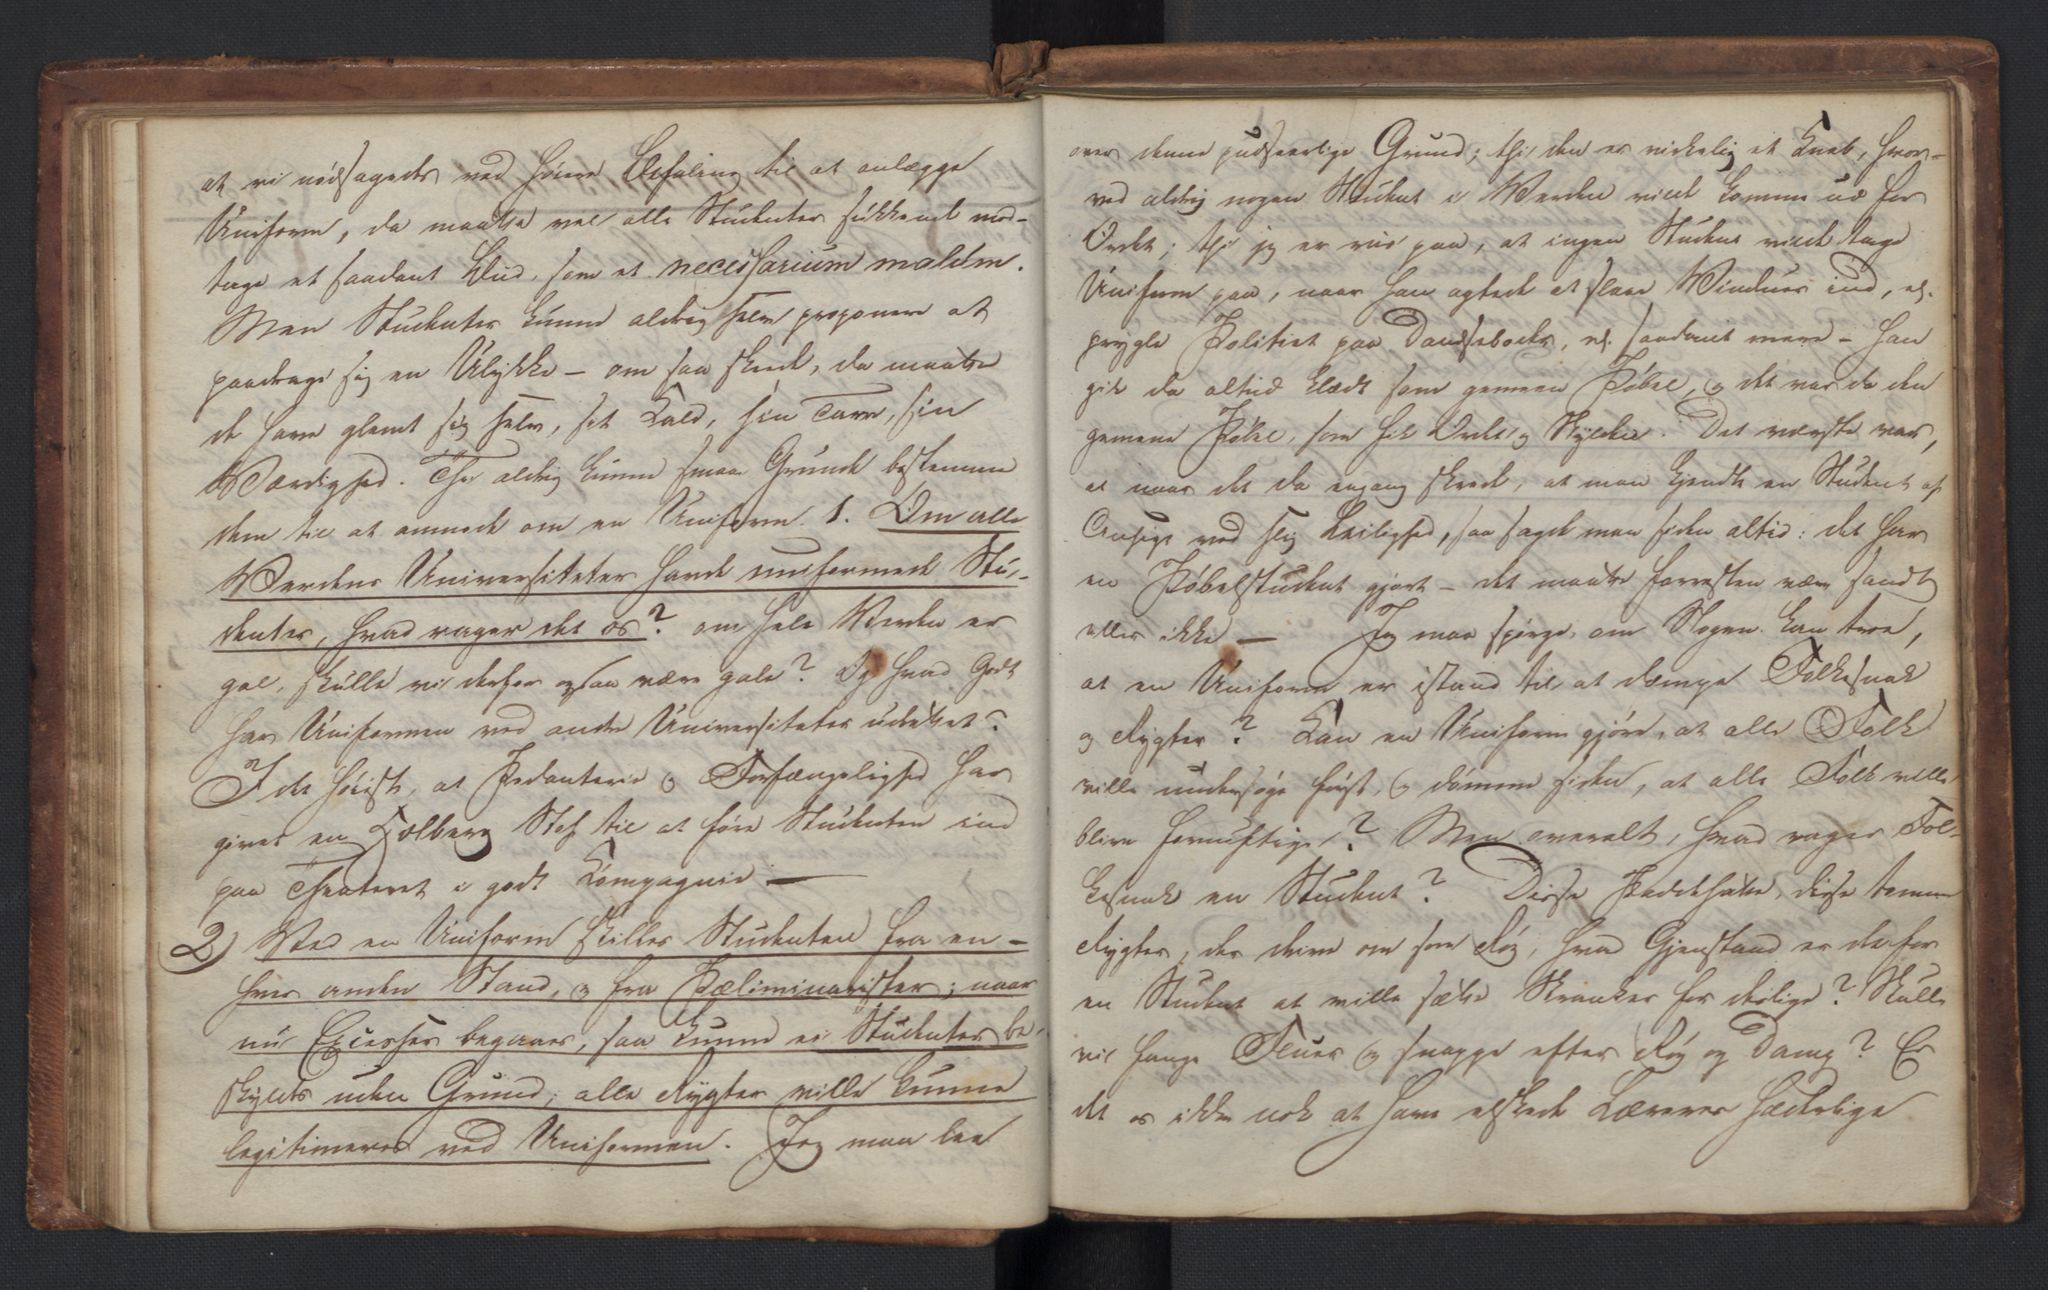 at vi nødsagedes ved høiere Befaling til at anlægge
Uniform, da maatte vel alle Studenter sukkende mod-
tage et saadant Bud, som et necessarium malum.
Men Studenter kunne aldrig selv proponere at
paadrage sig en Ulykke – om saa skeede, da maatte
de have glemt sig selv, sit Kald, sin Tarv, sin
Værdighed. Thi aldrig kunne smaa Grunde bestemme
dem til at anmode om en Uniform. 1. Om alle
Verdens Universiteter havde uniformerede Stu-
denter, hvad rager det os? om hele Verden er
gal, skulle vi derfor ogsaa være gale? Og hvad Godt
har Uniformen ved andre Universiteter udrettet?
I det høieste, at Pedanterie og Forfængelighed har
givet en Holberg Stof til at føre Studenten ind
paa Theateret i godt Kompagnie —
2) Ved en Uniform skilles Studenten fra en-
hver anden Stand, og fra Præliminarister; naar
nu Excesser begaaes, saa kunne ei Studenter be-
skyldes uden Grund; alle Rygter ville kunne
legitimeres ved Uniformen. Jeg maa lee
over denne pudseerlige Grund; thi den er virkelig et Kneb, hvor-
ved aldrig nogen Student i Verden vilde komme ud for
Ordet; thi jeg er vis paa, at ingen Student vilde tage
Uniform paa, naar han agtede at slaae Vinduer ind, el.
prygle Politiet paa Dandseboder, el. saadant mere – han
gik da altid klædt som gemeen Pøbel, og det var da den
gemene Pøbel, som fik Ordet og Skylden. Det værste var,
at naar det da engang skeede, at man kjendte en Student af
Ansigt ved slig Leilighed, saa sagde man siden altid: det har
en Pøbelstudent gjort – det maatte forresten være sandt
eller ikke — Jeg maa spørge, om Nogen kan troe,
at en Uniform er istand til at dæmpe Folkesnak
og Rygter? Kan en Uniform gjøre, at alle Folk
ville undersøge først, og dømme siden, at alle Folk ville
blive fornuftige? Men overalt, hvad rager Fol-
kesnak en Student? Disse Paddehatte, disse tomme
Rygter, der drive om som Røg, hvad Gjenstand er det for
en Student at ville sætte Skranker for deslige? Skulle
vi fange Fluer og snappe efter Røg og Damp? Er
det os ikke nok at have elskede Læreres hæderlige